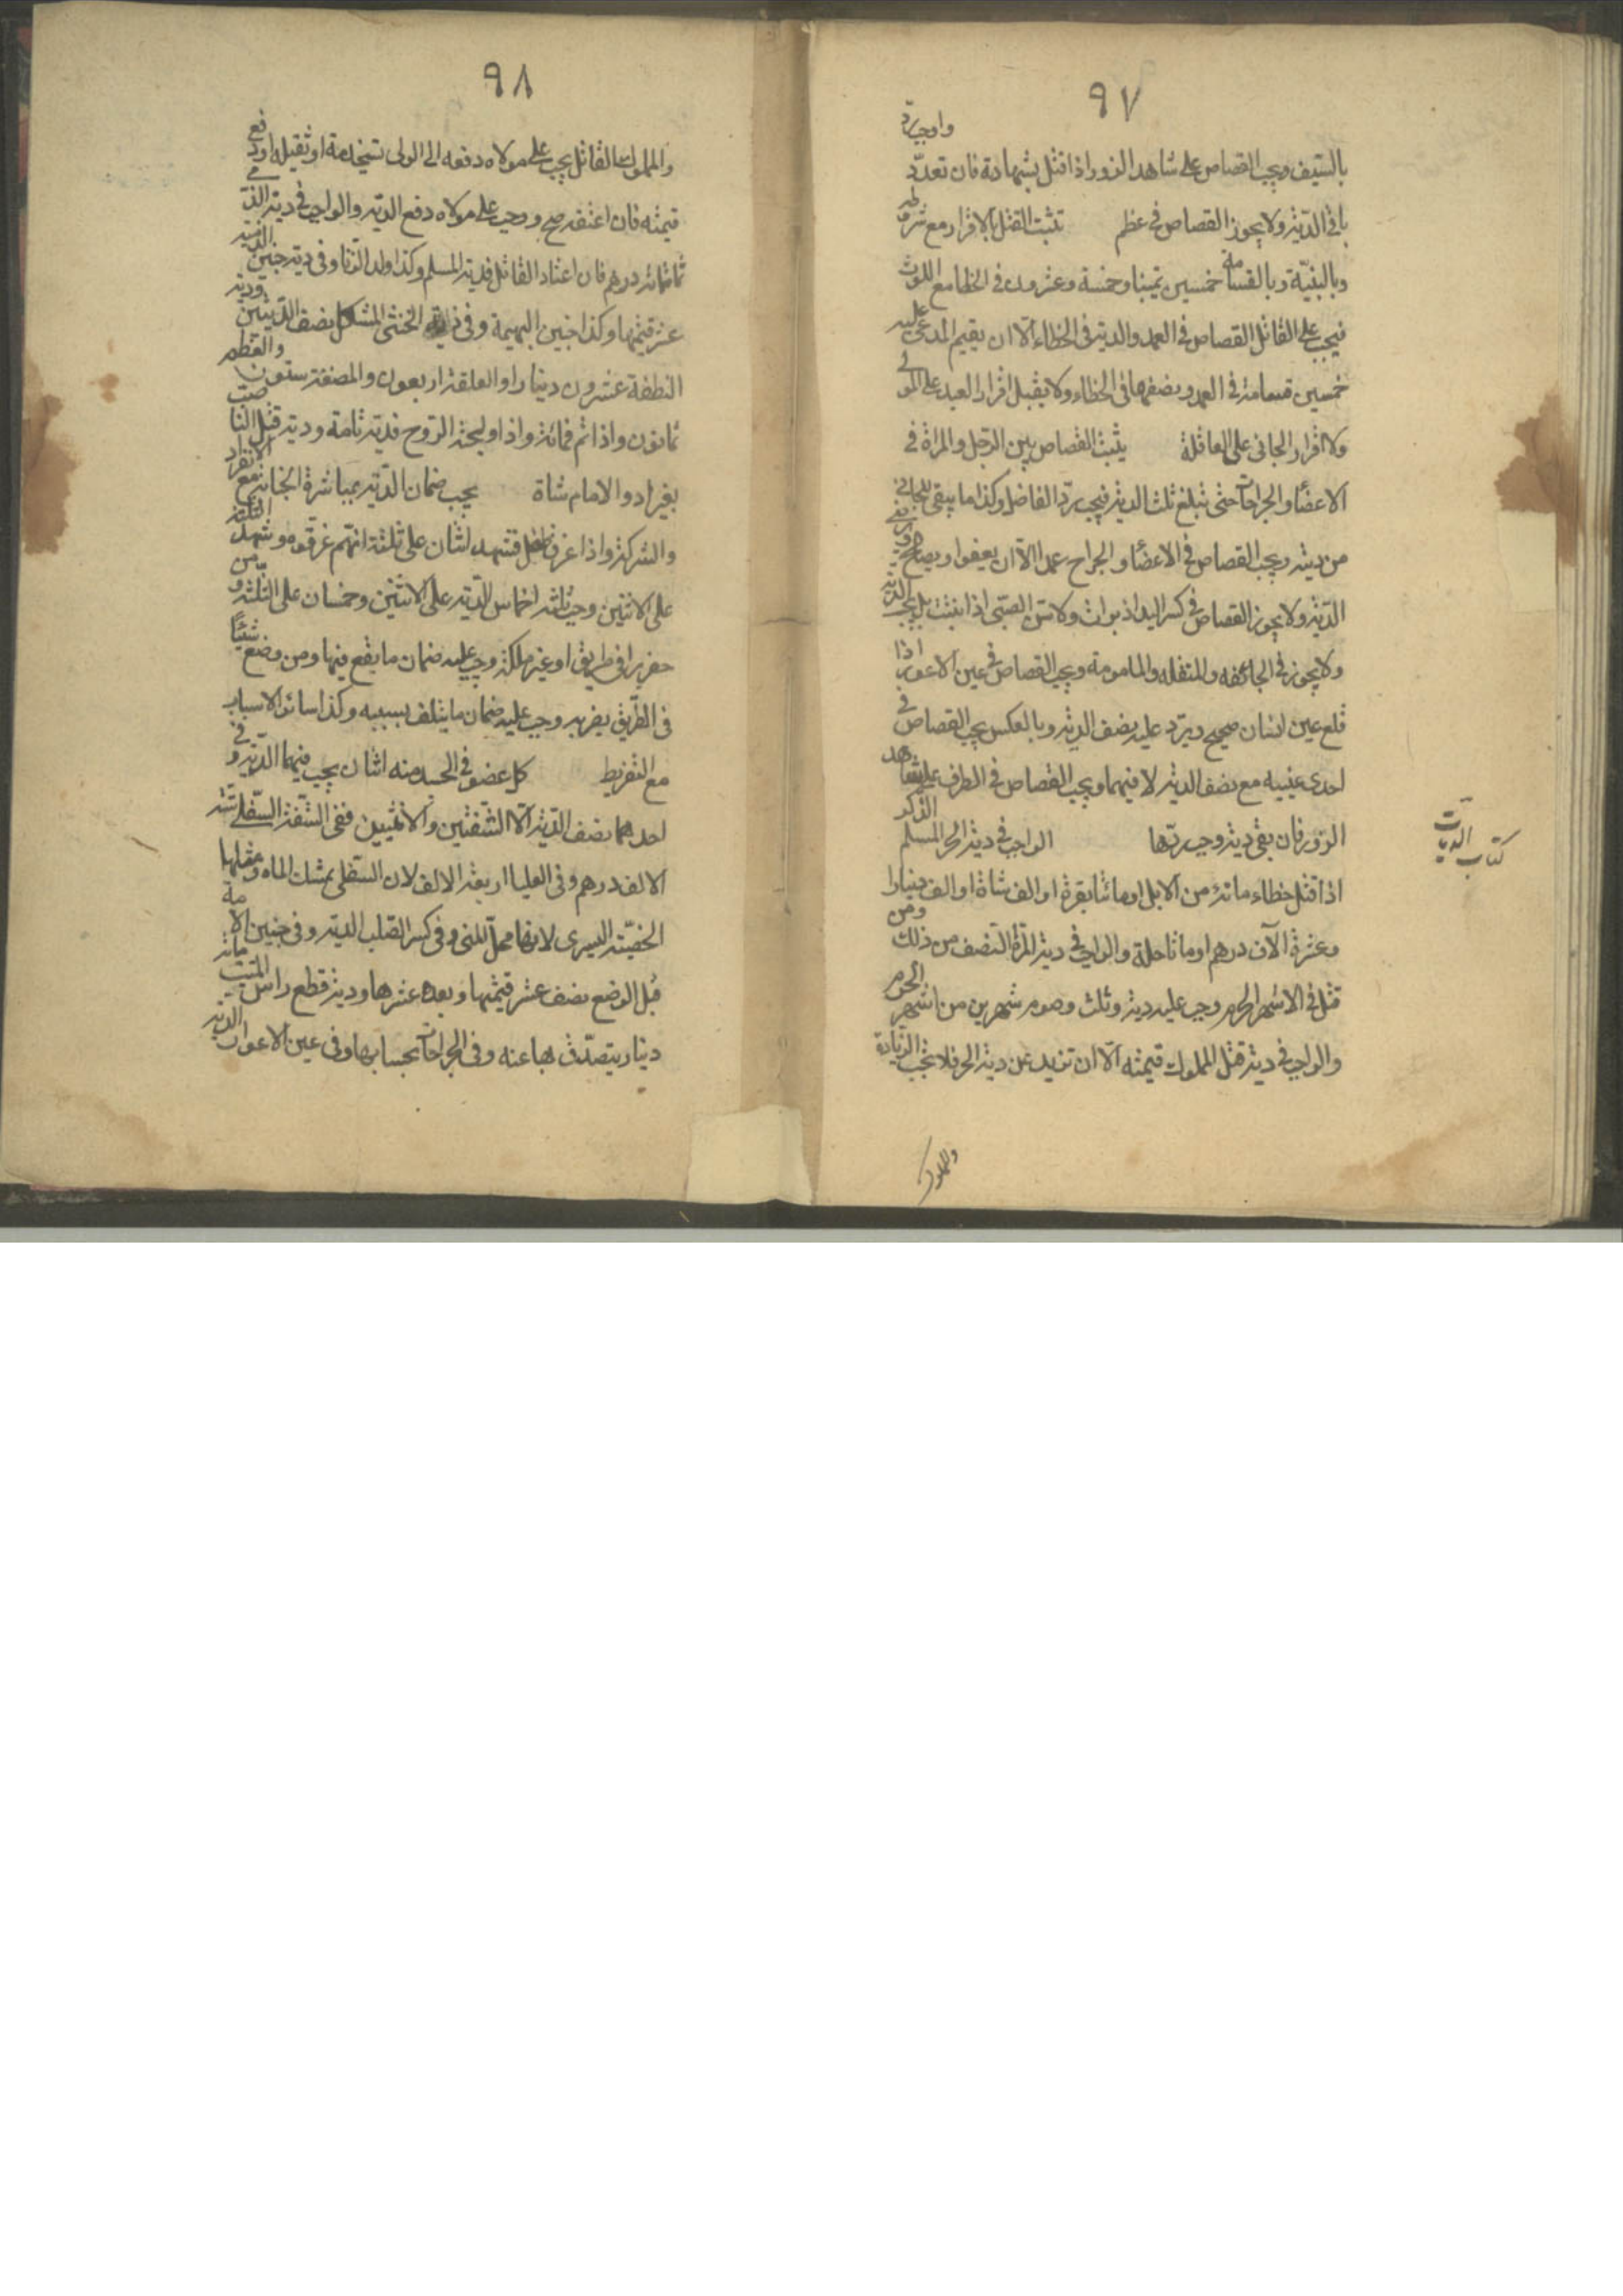 ٩٧
بالسيف ويجب القصاص على شاهد الزور اذا قتل بشهادته فان تعدد واوجب رد
باقى الدية ولا يجوز القصاص فى عظم تثبت القتل بالاقرار مع شرطه
وبالبينة وبالقسامة خمسين يمينا وخمسة وعشرون فى الخطا مع اللوث
فيجب على القاتل القصاص فى العمد والدية فى الخطاء الا ان يقيم المدعى عليه
خمسين قسامة فى العمد ونصفها فى الخطاء ولا يقبل اقرار العبد على المولى
ولا اقرار الجانى على العاقلة يثبت القصاص بين الرجل والمراة فى
الاعضاء والجراحات حتى تبلغ ثلث الدية فيجب رد الفاضل وكذا ما يبقى للجانى
من ديته ويجب القصاص فى الاعضاء والجراح عمدا الا ان يعفوا ويصالح
الدية ولا يجوز القصاص فى كسر اليد اذ برات ولا سن الصبى اذا نبتت بل يجب الدية
ولا يجوز فى الجائفه والمنقله والمامومة ويجب القصاص فى عين الاعور اذا
قلع عين انسان صحيح ويرد عليه نصف الدية وبالعكس يجب القصاص فى
احدى عينيه مع نصف الدية لا فيهما ويجب القصاص فى الطرف على شاهد
الزور فان بقى دية وجب ردها الواجب فى دية الحر المسلم الذكر
كتاب الديات
اذا قتل خطاء مائة من الابل او مائتا بقرة او الف شاة او الف دينارا
وعشرة الاف درهم او مائتا حلة والواجب فى دية المراة النصف من ذلك ومن
قتل فى الاشهر الحرم وجب عليه دية وثلث وصوم شهرين من اشهر الحرم
والواجب فى دية قتل المملوك قيمته الا ان تزيد عن دية الحر فلا تجب الزيادة
والمملوك
٩٨
والمملوك القاتل يجب على مولاه دفعه الى الولى تسخدمة او تقيله او دفع
قيمته فان اعتقه صح ووجب على مولاه دفع الدية والواجب فى دية الذمى
ثمانمائة درهم فان اعتاد القاتل فدية المسلم وكذا ولد الزنا وفى دية جنين الذمية
عشر قيمتها وكذا جنين البهيمة وفى دية الخنثى المشكل نصف الديتين ودية
النطفة عشرون دينارا والعلقة اربعون والمضغة ستون والعظم
ثمانون واذا تم فمائة واذا ولجته الروح فدية تامة ودية قتل الناصب
بغير اذن الامام شاة يجب ضمان الدية بمباشرة الجناية مع الانفراد
والشركة واذا غرق طفل فشهد اثنان على ثلثة انهم غرقوه وشهد الثلثة
على الاثنين وجب ثلثة اخماس الدية على الاثنين وخمسان على الثلثة ومن
حفر بئرا فى طريق او غير ملكه وجب عليه ضمان ما يقع فيها ومن وضع شيئا
فى الطريق يضر به وجب عليه ضمان ما يتلف بسببه وكذا سائر الاسباب
مع التفريط كل عضو فى الجسد منه اثنان يجب فيهما الدية وفى
احدهما نصف الدية الا الشفتين والانثيين ففى الشفة السفلى ستة
الالف درهم وفى العليا اربعة الالف لان السفلى تمسك الماء ومثلها
الخصية اليسرى لانها محل للمنى وفى كسر الصلب الدية وفى جنين الامة
قبل الوضع نصف عشر قيمتها وبعده عشرها ودية قطع راس الميت مائة
دينار يتصدق بها عنه وفى الجراحات بحسابها وفى عين الاعور الدية